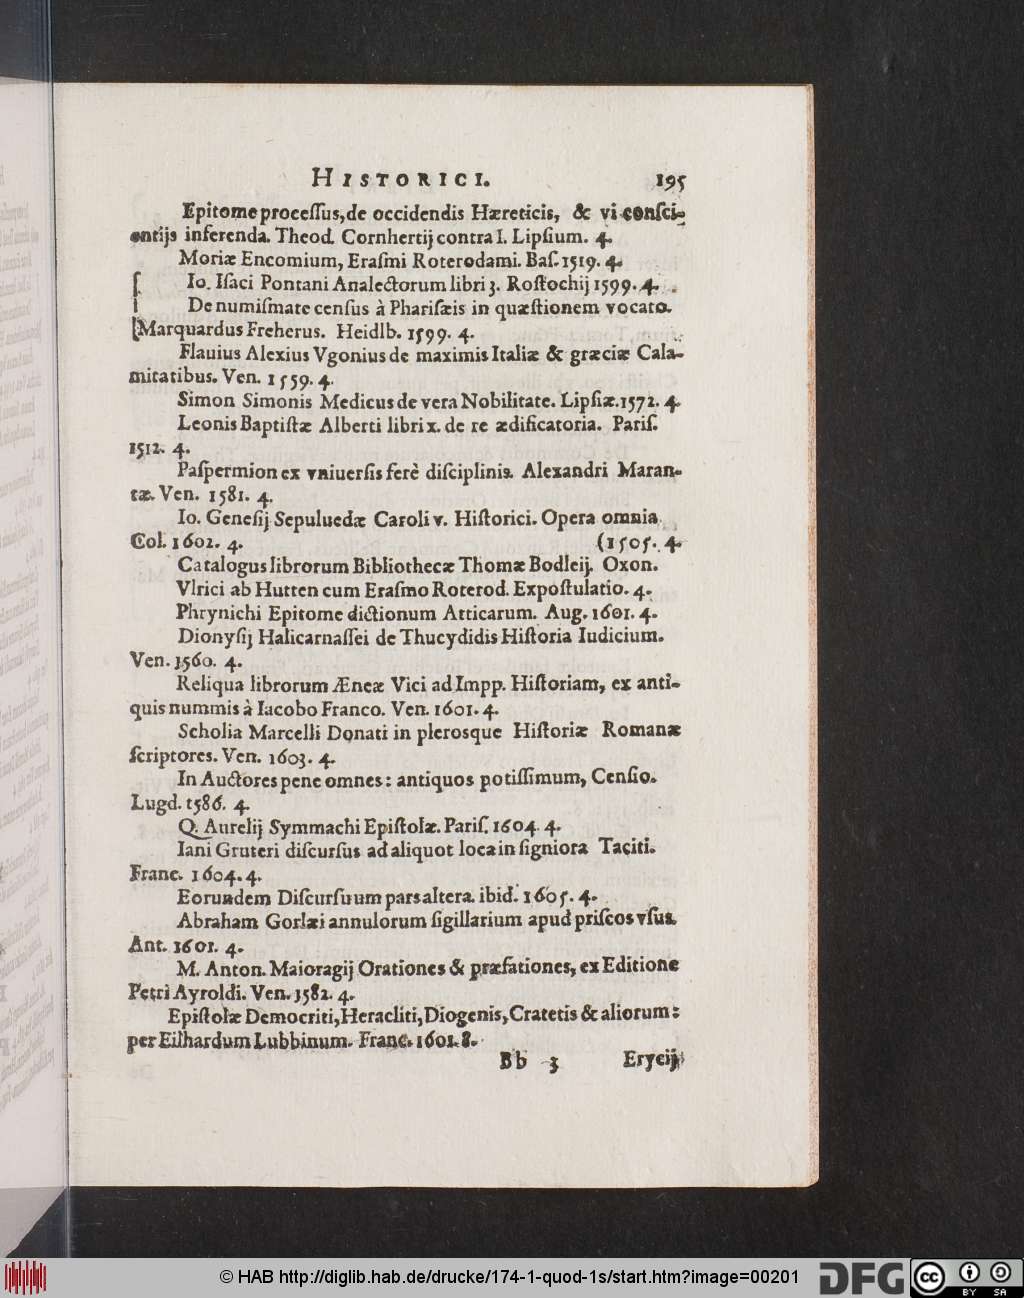 HISTORICI. 195
Epitome processus, de occidendis Hæreticis, & vi consci-
entijs inferenda. Theod. Cornhertij contra I. Lipsium. 4.
Moriæ Encomium, Erasmi Roterodami. Bas. 1519. 4.
Io. Isaci Pontani Analectorum libri 3. Rostochij 1599. 4.
De numismate census à Pharisæis in quæstionem vocato.
Marquardus Freherus. Heidlb. 1599. 4.
Flauius Alexius Vgonius de maximis Italiæ & græciæ Cala-
mitatibus. Ven. 1559. 4.
Simon Simonis Medicus de vera Nobilitate. Lipsiæ. 1572. 4.
Leonis Baptistæ Alberti libri x. de re ædificatoria. Paris.
1512. 4.
Paspermion ex vniuersis ferè disciplinis. Alexandri Maran-
tæ. Ven. 1581. 4.
Io. Genesij Sepuluedæ Caroli v. Historici. Opera omnia
Col. 1602. 4. (1505. 4.
Catalogus librorum Bibliothecæ Thomæ Bodleij. Oxon.
Vlrici ab Hutten cum Erasmo Roterod. Expostulatio. 4.
Phrynichi Epitome dictionum Atticarum. Aug. 1601. 4.
Dionysij Halicarnassei de Thucydidis Historia Iudicium.
Ven. 1560. 4.
Reliqua librorum Æneæ Vici ad Impp. Historiam, ex anti-
quis nummis à Iacobo Franco. Ven. 1601. 4.
Scholia Marcelli Donati in plerosque Historiæ Romanæ
scriptores. Ven. 1603. 4.
In Auctores pene omnes: antiquos potissimum, Censio.
Lugd. 1586. 4.
Q. Aurelij Symmachi Epistolæ. Paris. 1604. 4.
Iani Gruteri discursus ad aliquot loca in signiora Taciti.
Franc. 1604. 4.
Eorundem Discursuum pars altera. ibid. 1605. 4.
Abraham Gorlæi annulorum sigillarium apud priscos vsus.
Ant. 1601. 4.
M. Anton. Maioragij Orationes & præfationes, ex Editione
Petri Ayroldi. Ven. 1582. 4.
Epistolæ Democriti, Heracliti, Diogenis, Cratetis & aliorum:
per Eilhardum Lubbinum. Franc. 1601. 8.
Bb 3 Erycij
© HAB http://diglib.hab.de/drucke/174-1-quod-1s/start.htm?image=00201
DFG
cc BY SA